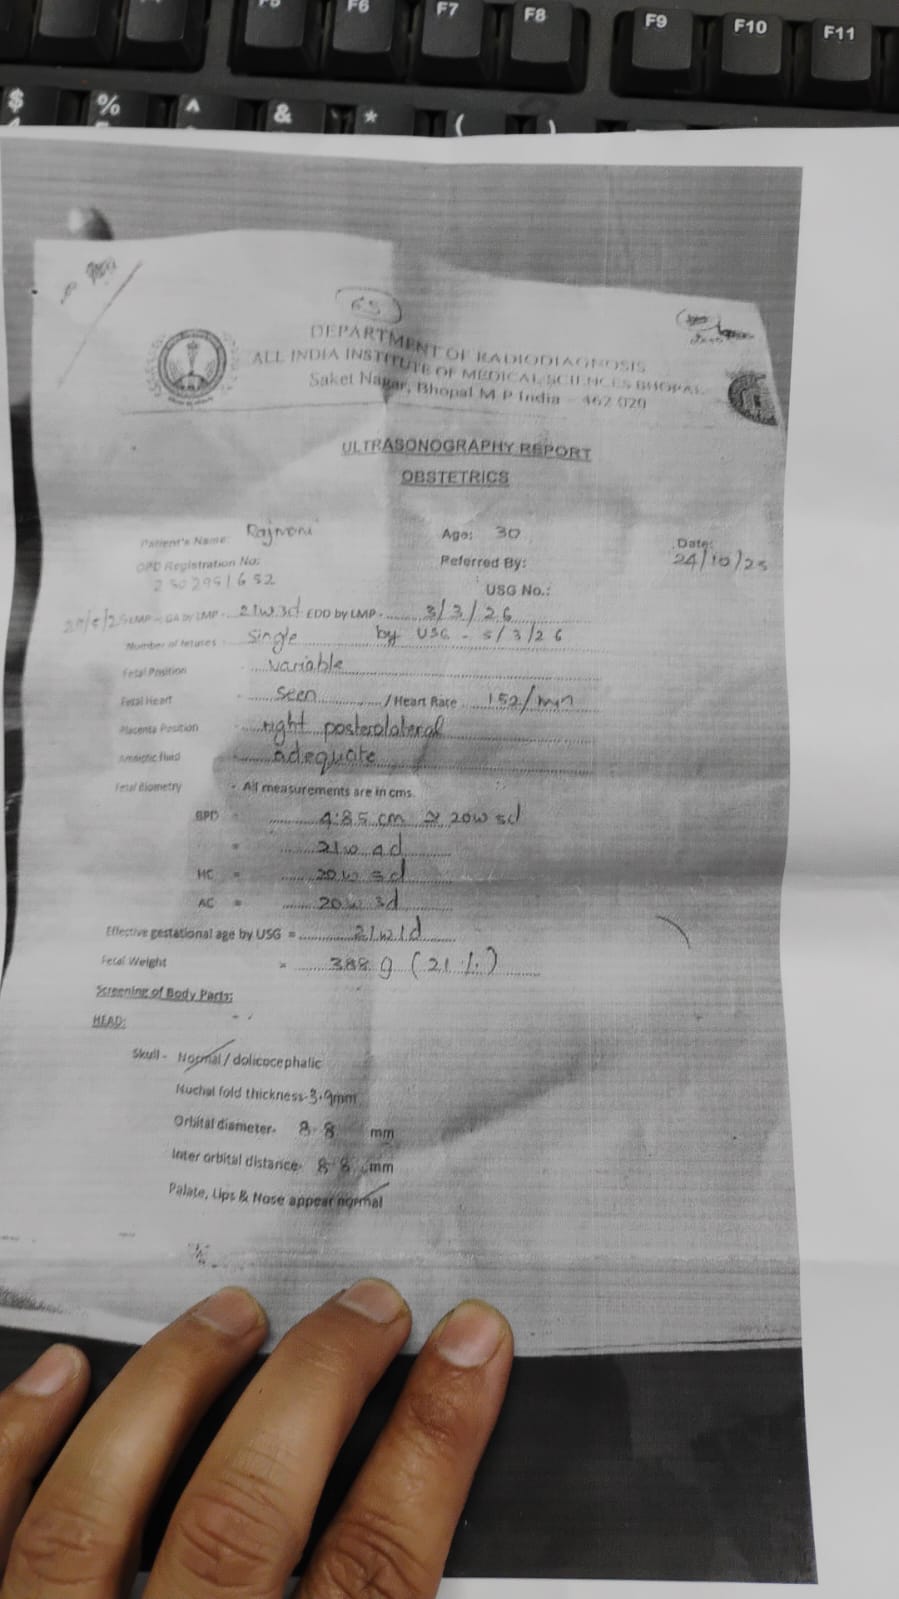 F6 F7 F8 F9 F10 F11
$ % ^ & * ( )
65
DEPARTMENT OF RADIODIAGNOSIS
ALL INDIA INSTITUTE OF MEDICAL SCIENCES BHOPAL
Saket Nagar, Bhopal M P India - 462 020
ULTRASONOGRAPHY REPORT
OBSTETRICS
Patient's Name: Rajmani Age: 30 Date:
24/10/25
OPD Registration No: Referred By:
2302951652
USG No.:
LMP - GA by LMP - 21w3d EDD by LMP - 3/3/26
Number of fetuses - Single by USG - 5/3/26
Fetal Position - variable
Fetal Heart - seen / Heart Rate 152/min
Placenta Position - right posterolateral
Amniotic fluid - adequate
Fetal Biometry - All measurements are in cms.
BPD - 4.85 cm ≈ 20w 5d
= 21w 4d
HC = 20w 5d
AC = 20w 3d
Effective gestational age by USG = 21w1d
Fetal Weight = 388 g (21%)
Screening of Body Parts:
HEAD:
Skull - Normal / dolicocephalic
Nuchal fold thickness-3.9mm
Orbital diameter- 8.8 mm
Inter orbital distance- 8.8 mm
Palate, Lips & Nose appear normal